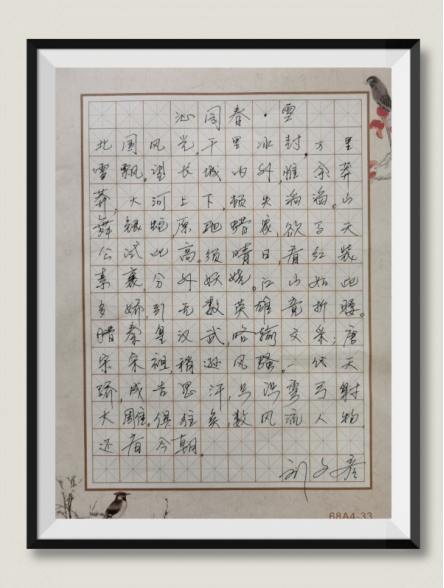 沁园春·雪
北国风光,千里冰封,万里
雪飘。望长城内外,惟余莽
莽,大河上下,顿失滔滔。山
舞银蛇,原驰蜡象,欲与天
公试比高。须晴日,看红装
素裹,分外妖娆。江山如此
多娇,引无数英雄竞折腰。
惜秦皇汉武,略输文采;唐
宗宋祖,稍逊风骚。一代天
骄,成吉思汗,只识弯弓射
大雕。俱往矣,数风流人物,
还看今朝。
刘文彦
68A4-33